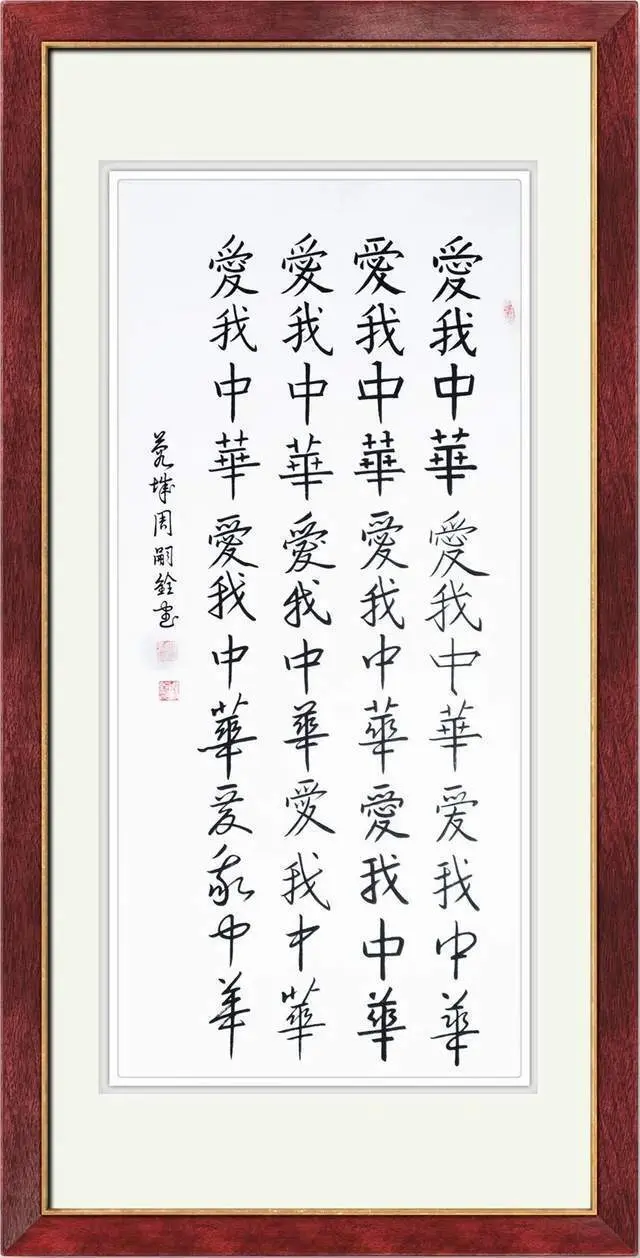 愛我中華愛我中華爱我中華
愛我中華愛我中華愛我中華
愛我中華愛我中華愛我中華
愛我中華愛我中華爱我中華
蓉城周嗣銓書